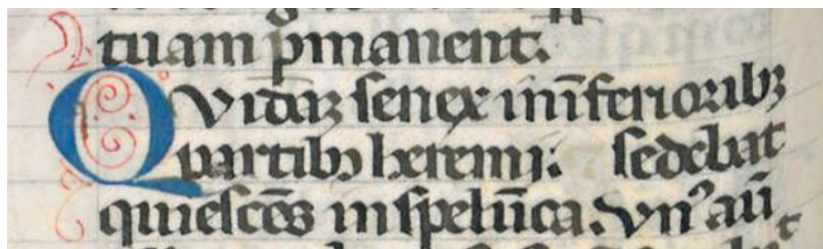 tuam ꝑmanent.
QVidaꝫ ſenex in īferioꝛibꝫ
partibꝰ heremi: ſedebat
quieſcēs in ſpelūca. Vnꝰ aūt